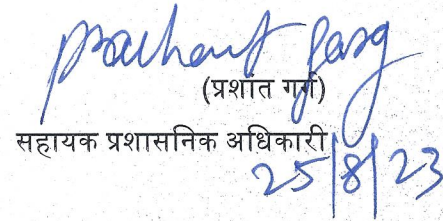 Prashant Garg
(प्रशांत गर्ग)
सहायक प्रशासनिक अधिकारी
25/8/23